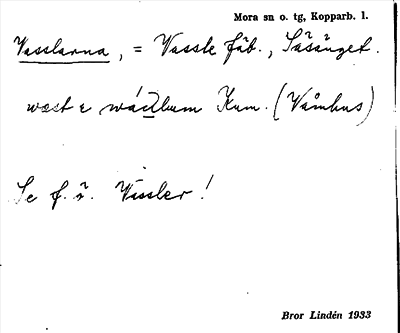 Mora sn o. tg, Kopparb. l.
Vasslarna, = Vassle fäb., Säsänget.
väst
Kum. (Våmhus)
Se f. ö. Vässler!
Bror Lindén 1933